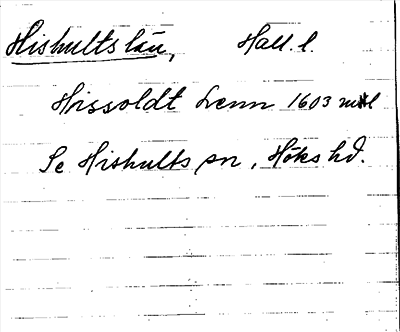 Hishults län, Hall. l.
Hissoldt Lenn 1603
Se Hishults sn, Höks hd.